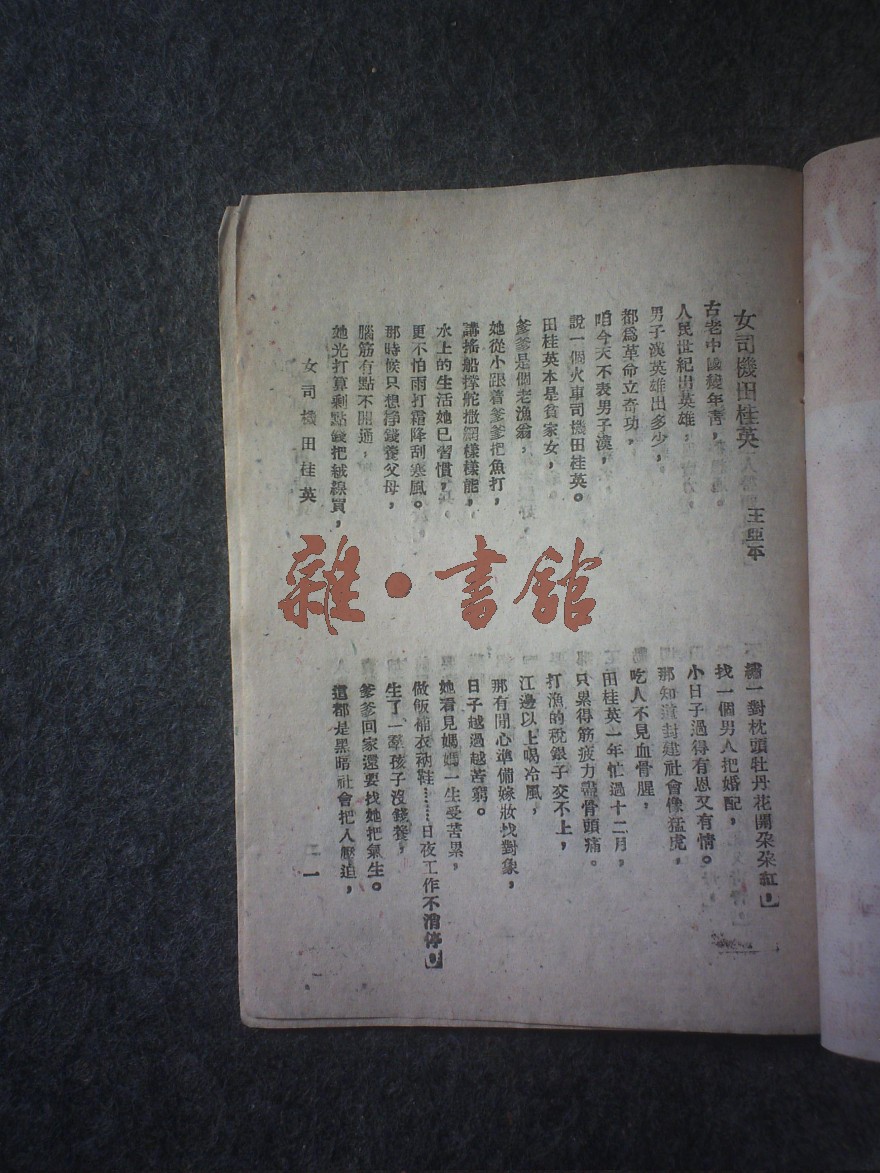 女司機田桂英
王亞平
古老中國變年青，
人民世紀出英雄，
男子漢英雄出多少，
都爲革命立奇功，
咱今天不表男子漢，
說一個火車司機田桂英。
田桂英本是貧家女，
爹爹是個老漁翁，
她從小跟着爹爹把魚打，
講搖船撐舵撒網樣樣能，
水上的生活她已習慣，
更不怕雨打霜降刮寒風。
那時候只想掙錢養父母，
腦筋有點不開通，
她光打算剩點錢把絨線買，
繡一對枕頭牡丹花開朶朶紅，】
找一個男人把婚配，
小日子過得有恩又有情。
那知道封建社會像猛虎，
吃人不見血骨腥，
田桂英一年忙過十二月，
只累得筋疲力盡骨頭痛。
打漁的稅銀子交不上，
江邊以上喝冷風，
那有閒心準備嫁妝找對象，
日子越過越苦窮。
她看見媽媽一生受苦累，
做飯補衣衲鞋……日夜工作不消停，】
生了一羣孩子沒錢養，
爹爹回家還要找她把氣生。
這都是黑暗社會把人壓迫，
女司機田桂英
二一
雜·書館
女